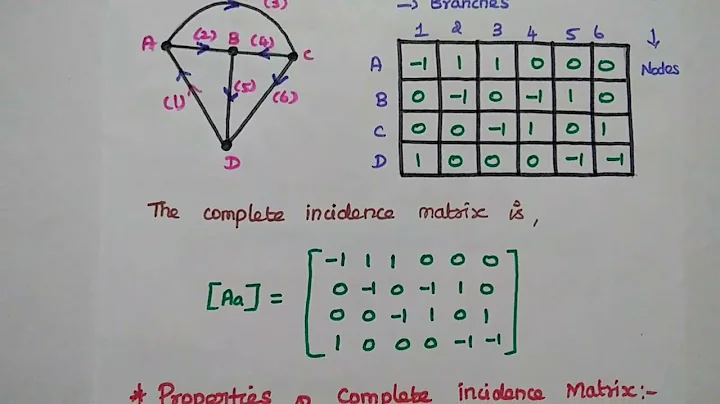 (3)
→ Branches
A (2) B (4) C
(1) (5) (6)
D
1 2 3 4 5 6 ↓
Nodes
A -1 1 1 0 0 0
B 0 -1 0 -1 1 0
C 0 0 -1 1 0 1
D 1 0 0 0 -1 -1
The complete incidence matrix is,
[Aa] =
-1 1 1 0 0 0
0 -1 0 -1 1 0
0 0 -1 1 0 1
1 0 0 0 -1 -1
* Properties complete incidence Matrix:-